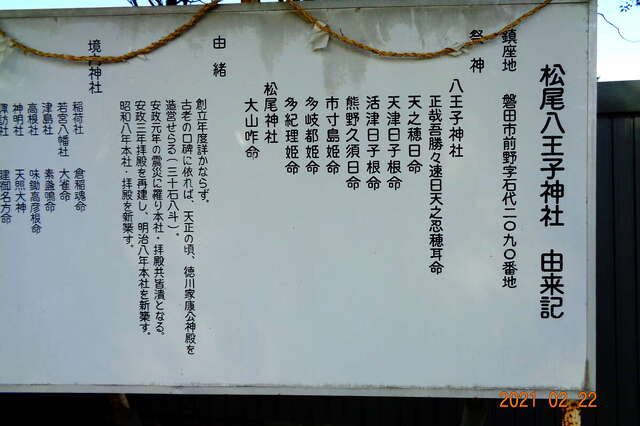 松尾八王子神社 由来記
鎮座地 磐田市前野字石代二〇九〇番地
祭神
八王子神社
正哉吾勝々速日天之忍穂耳命
天之穂日命
天津日子根命
活津日子根命
熊野久須日命
市寸島姫命
多岐都姫命
多紀理姫命
松尾神社
大山咋命
由緒
創立年度詳かならず。
古老の口碑に依れば、天正の頃、徳川家康公神殿を
造営せらる(三十石八斗)。
安政元年の震災に罹り本社・拝殿共皆潰となる。
安政三年拝殿を再建し、明治八年本社を新築す。
昭和八年本社・拝殿を新築す。
境内神社
稲荷社 倉稲魂命
若宮八幡社 大雀命
津島社 素盞嗚命
高根社 味鋤高彦根命
神明社 天照大神
諏訪社 建御名方命
2021 02 22